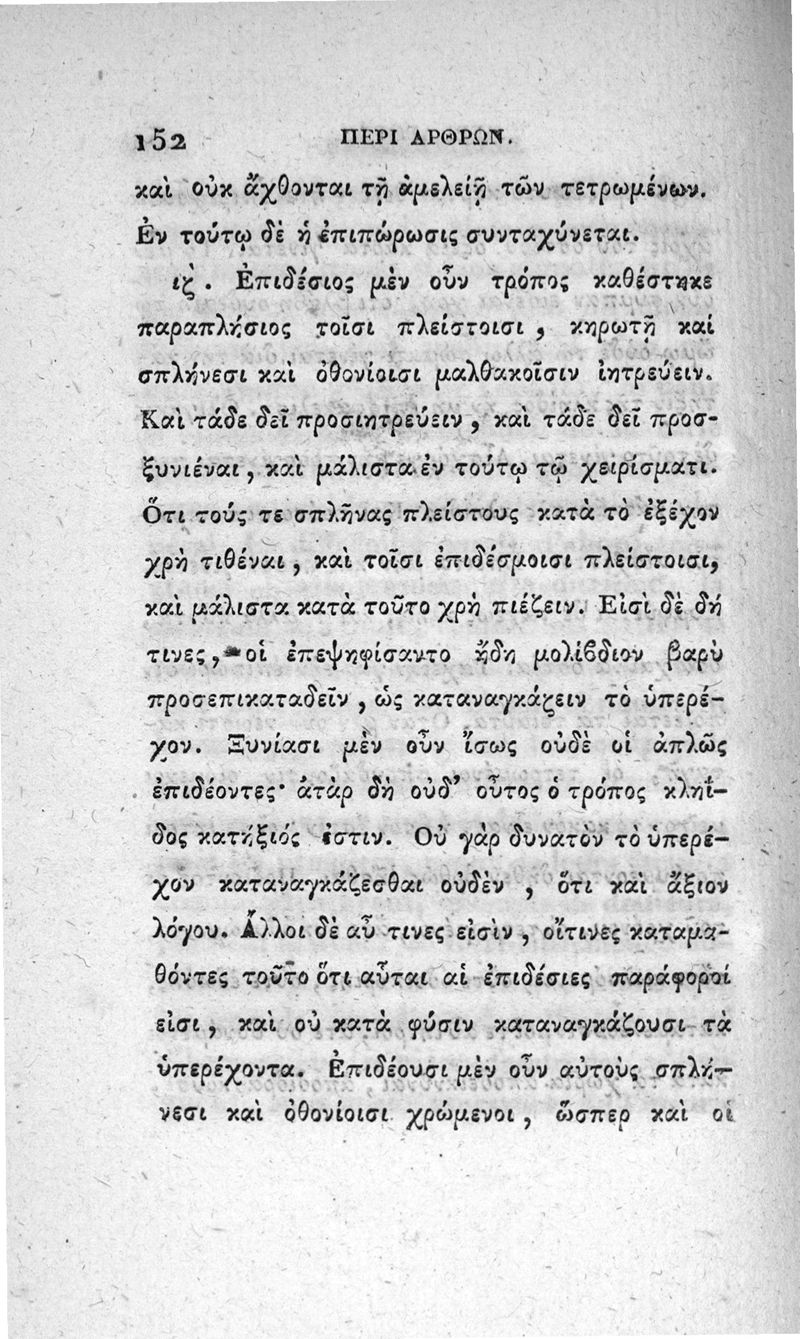 152 ΠΕΡΙ ΑΡΘΡΩΝ.
καὶ οὐκ ἄχθονται τῇ ἀμελείῃ τῶν τετρωμένων.
Ἐν τούτῳ δὲ ἡ ἐπιπώρωσις συνταχύνεται.
ιζ̀. Ἐπιδέσιος μὲν οὖν τρόπος καθέστηκε
παραπλήσιος τοῖσι πλείστοισι, κηρωτῇ καί
σπλήνεσι καὶ ὀθονίοισι μαλθακοῖσιν ἰητρεύειν.
Καὶ τάδε δεῖ προσιητρεύειν, καὶ τάδε δεῖ προσ-
ξυνιέναι, καὶ μάλιστα ἐν τούτῳ τῷ χειρίσματι.
Ὅτι τούς τε σπλῆνας πλείστους κατὰ τὸ ἐξέχον
χρὴ τιθέναι, καὶ τοῖσι ἐπιδέσμοισι πλείστοισι,
καὶ μάλιστα κατὰ τοῦτο χρὴ πιέζειν. Εἰσὶ δὲ δή
τινες, οἱ ἐπεψηφίσαντο ἤδη μολίβδιον βαρὺ
προσεπικαταδεῖν, ὡς καταναγκάζειν τὸ ὑπερέ-
χον. Ξυνίασι μὲν οὖν ἴσως οὐδὲ οἱ ἁπλῶς
ἐπιδέοντες· ἀτὰρ δὴ οὐδ’ οὗτος ὁ τρόπος κληΐ-
δος κατήξιός ἐστιν. Οὐ γὰρ δυνατὸν τὸ ὑπερέ-
χον καταναγκάζεσθαι οὐδὲν, ὅτι καὶ ἄξιον
λόγου. Ἄλλοι δὲ αὖ τινες εἰσὶν, οἵτινες καταμα-
θόντες τοῦτο ὅτι αὗται αἱ ἐπιδέσιες παράφοροί
εἰσι, καὶ οὐ κατὰ φύσιν καταναγκάζουσι τὰ
ὑπερέχοντα. Ἐπιδέουσι μὲν οὖν αὐτοὺς σπλή-
νεσι καὶ ὀθονίοισι χρώμενοι, ὥσπερ καὶ οἱ